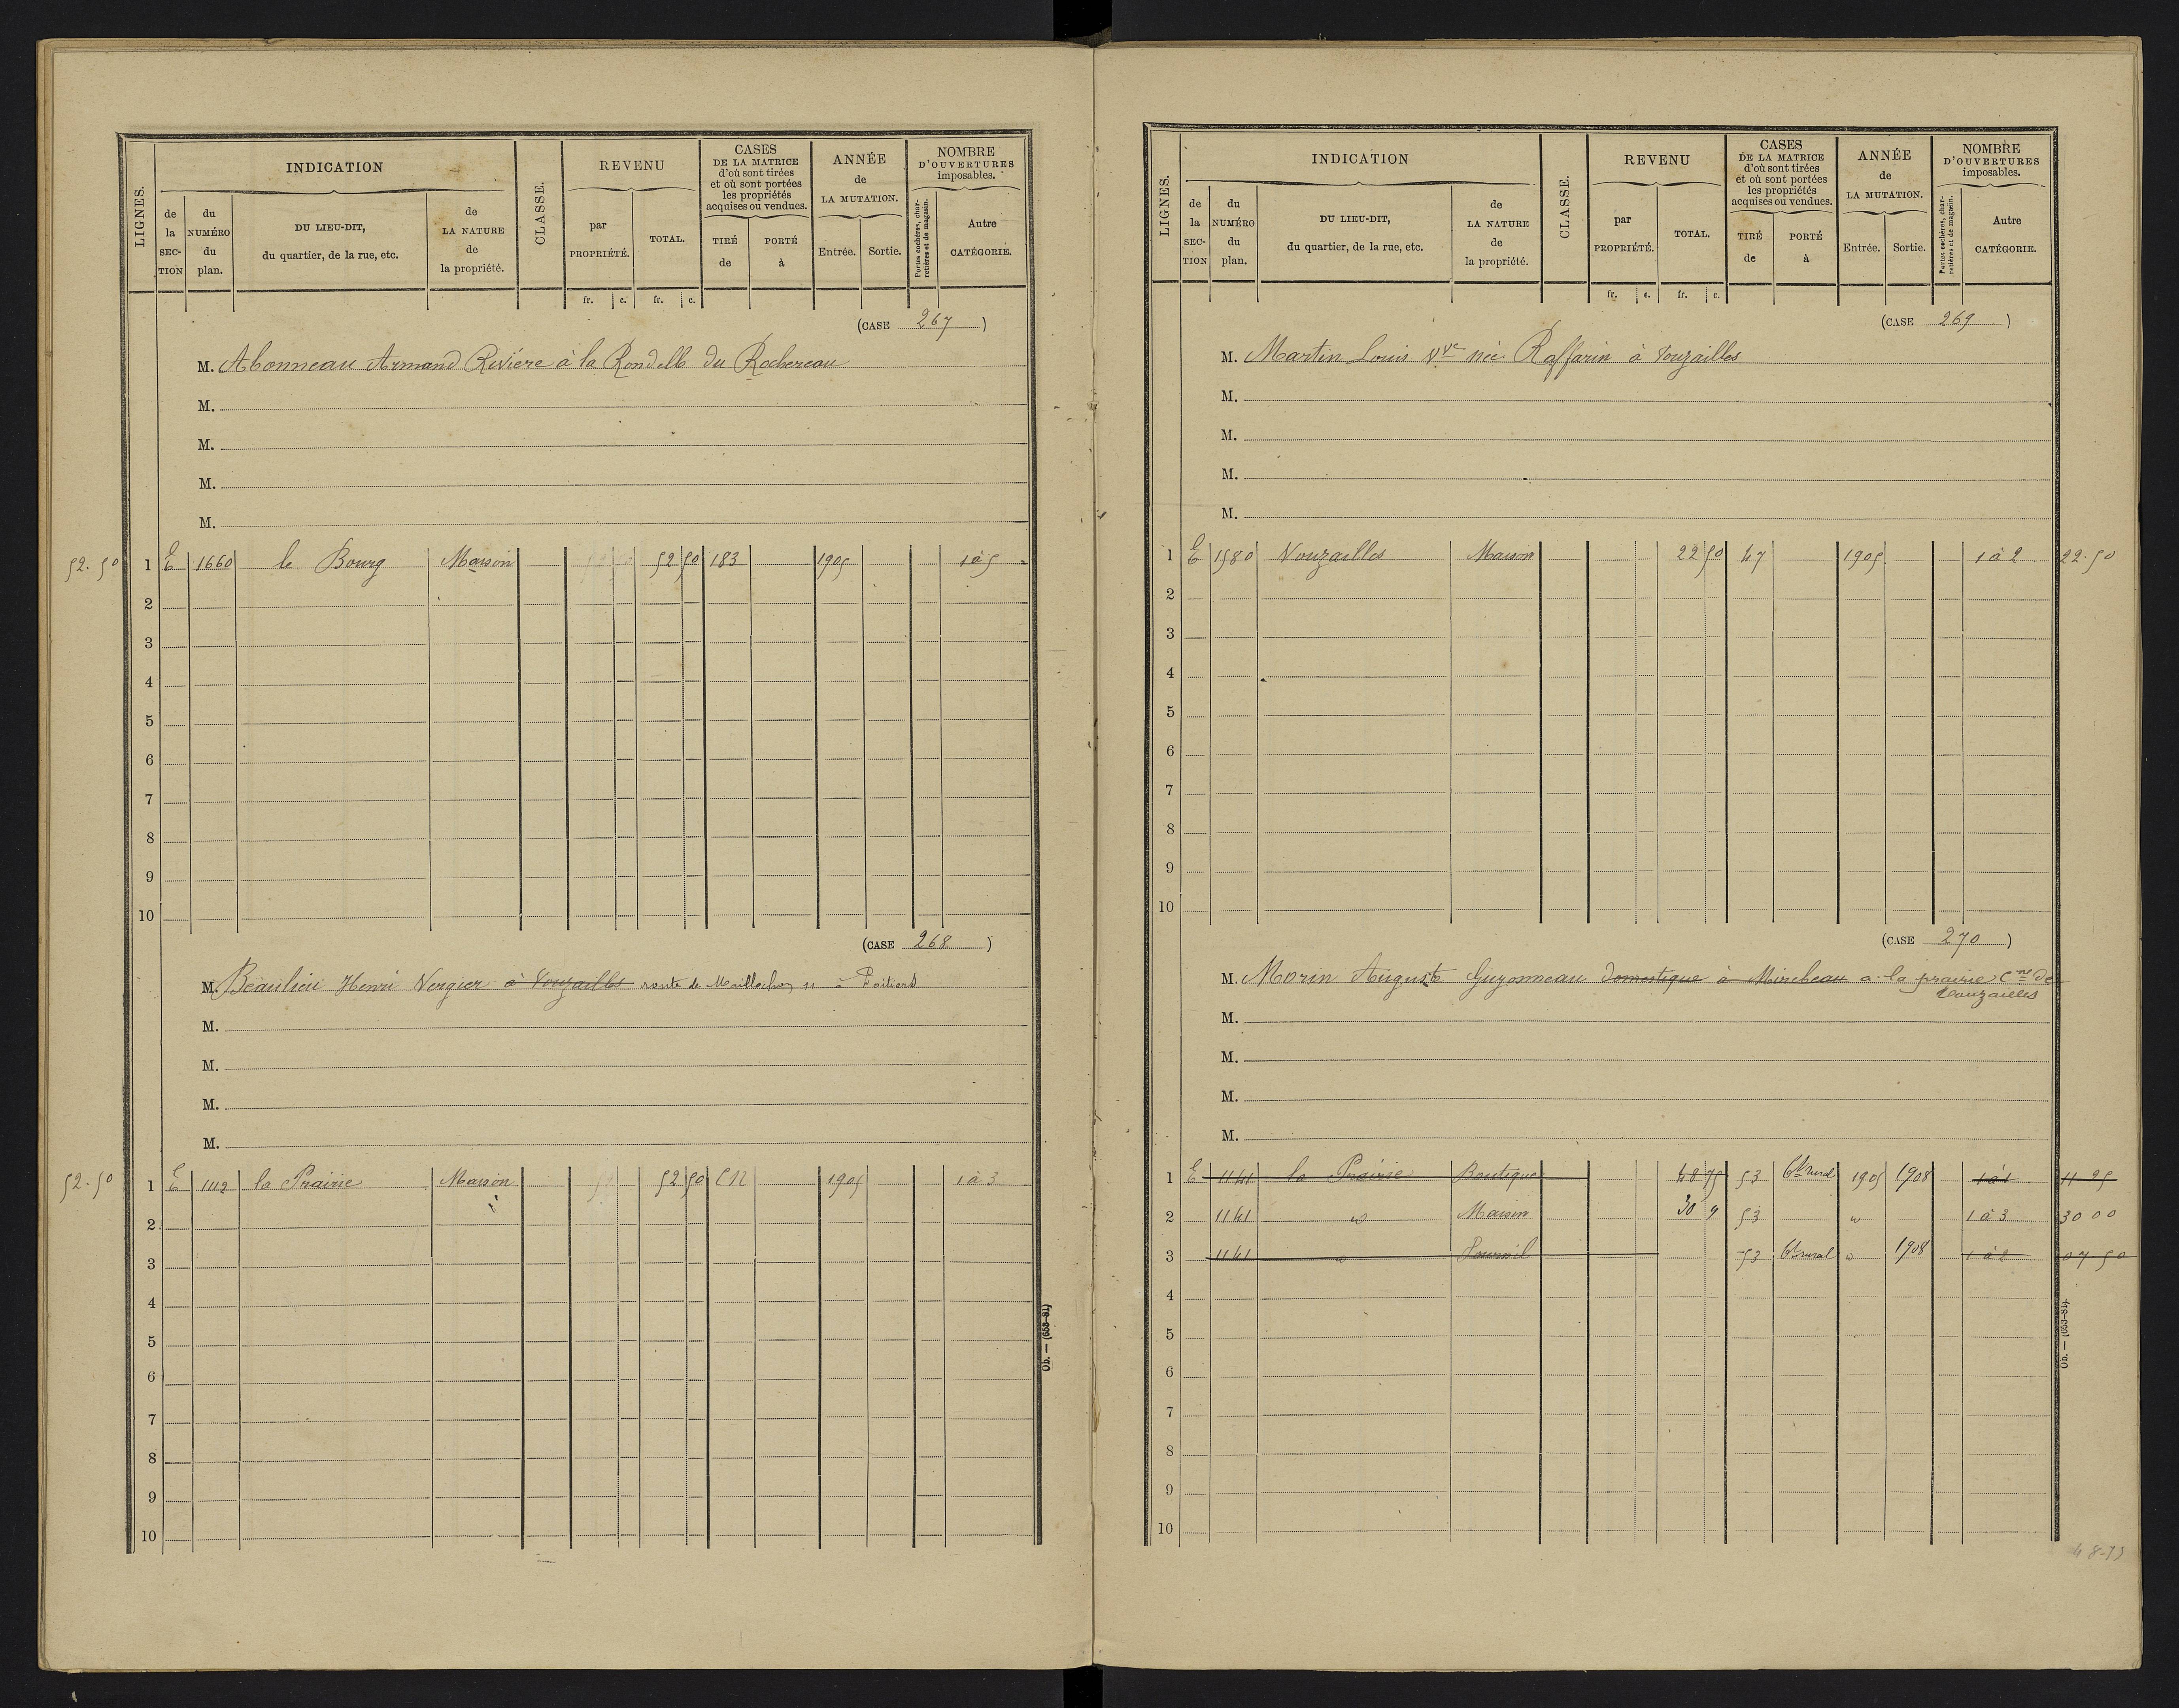 LIGNES.
INDICATION
de la SECTION
du NUMÉRO du plan.
DU LIEU-DIT, du quartier, de la rue, etc.
de LA NATURE de la propriété.
CLASSE.
REVENU
par PROPRIÉTÉ.
TOTAL.
CASES DE LA MATRICE d'où sont tirées et où sont portées les propriétés acquises ou vendues.
TIRÉ de
PORTÉ à
ANNÉE de LA MUTATION.
Entrée.
Sortie.
NOMBRE D'OUVERTURES imposables.
Portes cochères, charretières et de magasin.
Autre CATÉGORIE.
fr. c. fr. c.
(CASE 267)
M. Abonneau Armand Rivière à la Rondelle du Rochereau
M.
M.
M.
M.
52.50 1 E 1660 le Bourg Maison 52 50 183 1905 1 à 5
2
3
4
5
6
7
8
9
10
(CASE 268)
M. Beaulieu Henri Vergier à Vouzailles route de 11 à Poitiers
M.
M.
M.
M.
52.50 1 E 1112 la Prairie Maison 52 50 CN 1905 1 à 3
2
3
4
5
6
7
8
9
10
Ob. — (653-81)
LIGNES.
INDICATION
de la SECTION
du NUMÉRO du plan.
DU LIEU-DIT, du quartier, de la rue, etc.
de LA NATURE de la propriété.
CLASSE.
REVENU
par PROPRIÉTÉ.
TOTAL.
CASES DE LA MATRICE d'où sont tirées et où sont portées les propriétés acquises ou vendues.
TIRÉ de
PORTÉ à
ANNÉE de LA MUTATION.
Entrée.
Sortie.
NOMBRE D'OUVERTURES imposables.
Portes cochères, charretières et de magasin.
Autre CATÉGORIE.
fr. c. fr. c.
(CASE 269)
M. Martin Louis Vve née Raffarin à Vouzailles
M.
M.
M.
M.
1 E 1580 Vouzailles Maison 22 50 47 1905 1 à 2 22.50
2
3
4
5
6
7
8
9
10
(CASE 270)
M. Morin Auguste Guyonneau Domestique à Mirebeau a la prairie Cne de
Vouzailles
M.
M.
M.
M.
1 E 1141 la Prairie Boutique 48 75 53 Bt rural 1905 1908 1 à 1 11 25
2 1141 Maison 30 53 1 à 3 30 00
3 1141 Fournil 53 Bt rural 1908 07 50
4
5
6
7
8
9
10
Ob. — (653-81)
48-75